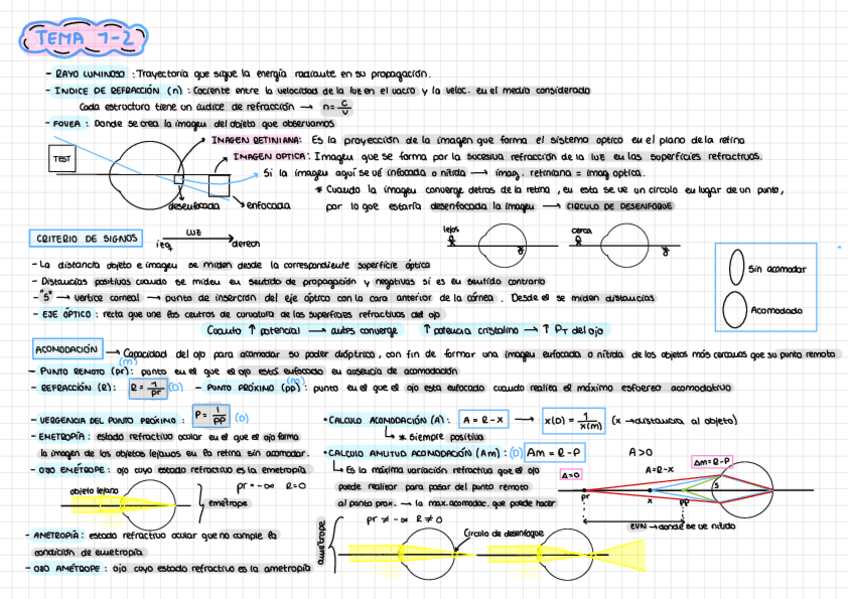 TEMA 1-2
- RAYO LUMINOSO : Trayectoria que sigue la energía radiante en su propagación.
- INDICE DE REFRACCIÓN (n) : Cociente entre la velocidad de la luz en el vacío y la veloc. en el medio considerado
Cada estructura tiene un índice de refracción → n = c/v
- FOVEA : Donde se crea la imagen del objeto que observamos
TEST
IMAGEN RETINIANA : Es la proyección de la imagen que forma el sistema optico en el plano de la retina
IMAGEN OPTICA : Imagen que se forma por la sucesiva refracción de la luz en las superficies refractivas.
Si la imagen aquí se vé enfocada o nítida → imag. retiniana = imag optica.
* Cuando la imagen converge detras de la retina, en esta se ve un círculo en lugar de un punto,
por lo que estaría desenfocada la imagen → CIRCULO DE DESENFOQUE
desenfocada
enfocada
CRITERIO DE SIGNOS
LUZ
izq
derech
lejos
cerca
- La distancia objeto e imagen se miden desde la correspondiente superficie óptica
- Distancias positivas cuando se miden en sentido de propagación y negativas si es en sentido contrario
- "S" → vertice corneal → punto de inserción del eje óptico con la cara anterior de la córnea . Desde el se miden distancias
- EJE ÓPTICO : recta que une los centros de curvatura de las superficies refractivas del ojo
Sin acomodar
Acomodado
Cuanto ↑ potencial → antes converge
↑ potencia cristalino → ↑ PT del ojo
ACOMODACIÓN → Capacidad del ojo para acomodar su poder dióptrico, con fin de formar una imagen enfocada o nítida de los objetos más cercanos que su punto remoto
- PUNTO REMOTO (pr) : punto en el que el ojo está enfocado en ausencia de acomodación
(m)
- REFRACCIÓN (R) : R = 1/pr (D)
- PUNTO PRÓXIMO (pp) : punto en el que el ojo esta enfocado cuando realiza el máximo esfuerzo acomodativo
(m)
- VERGENCIA DEL PUNTO PRÓXIMO : P = 1/PP (D)
- EMETROPÍA : estado refractivo ocular en el que el ojo forma
la imagen de los objetos lejanos en la retina sin acomodar.
- OJO EMÉTROPE : ojo cuyo estado refractivo es la emetropía
objeto lejano
pr = -∞ R=0
emétrope
- AMETROPÍA : estado refractivo ocular que no cumple la
condición de emetropía
- OJO AMÉTROPE : ojo cuyo estado refractivo es la ametropía
• CALCULO ACOMODACIÓN (A) : A = R - X → x(D) = 1/x(m) (x → distancia al objeto)
* siempre positiva
• CALCULO AMLITUD ACOMODACIÓN (Am) : (D) Am = R - P
Es la máxima variación refractiva que el ojo
puede realizar para pasar del punto remoto
al punto prox. → la max. acomodac. que puede hacer
A > 0
A = R - X
Am = R - P
A = 0
pr
x
pp
S
EVN → donde se ve nítido
ametrope
pr ≠ -∞ R ≠ 0
Círculo de desenfoque